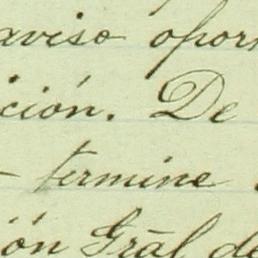 aviso opor
ción. De
- termine
ión Grāl de